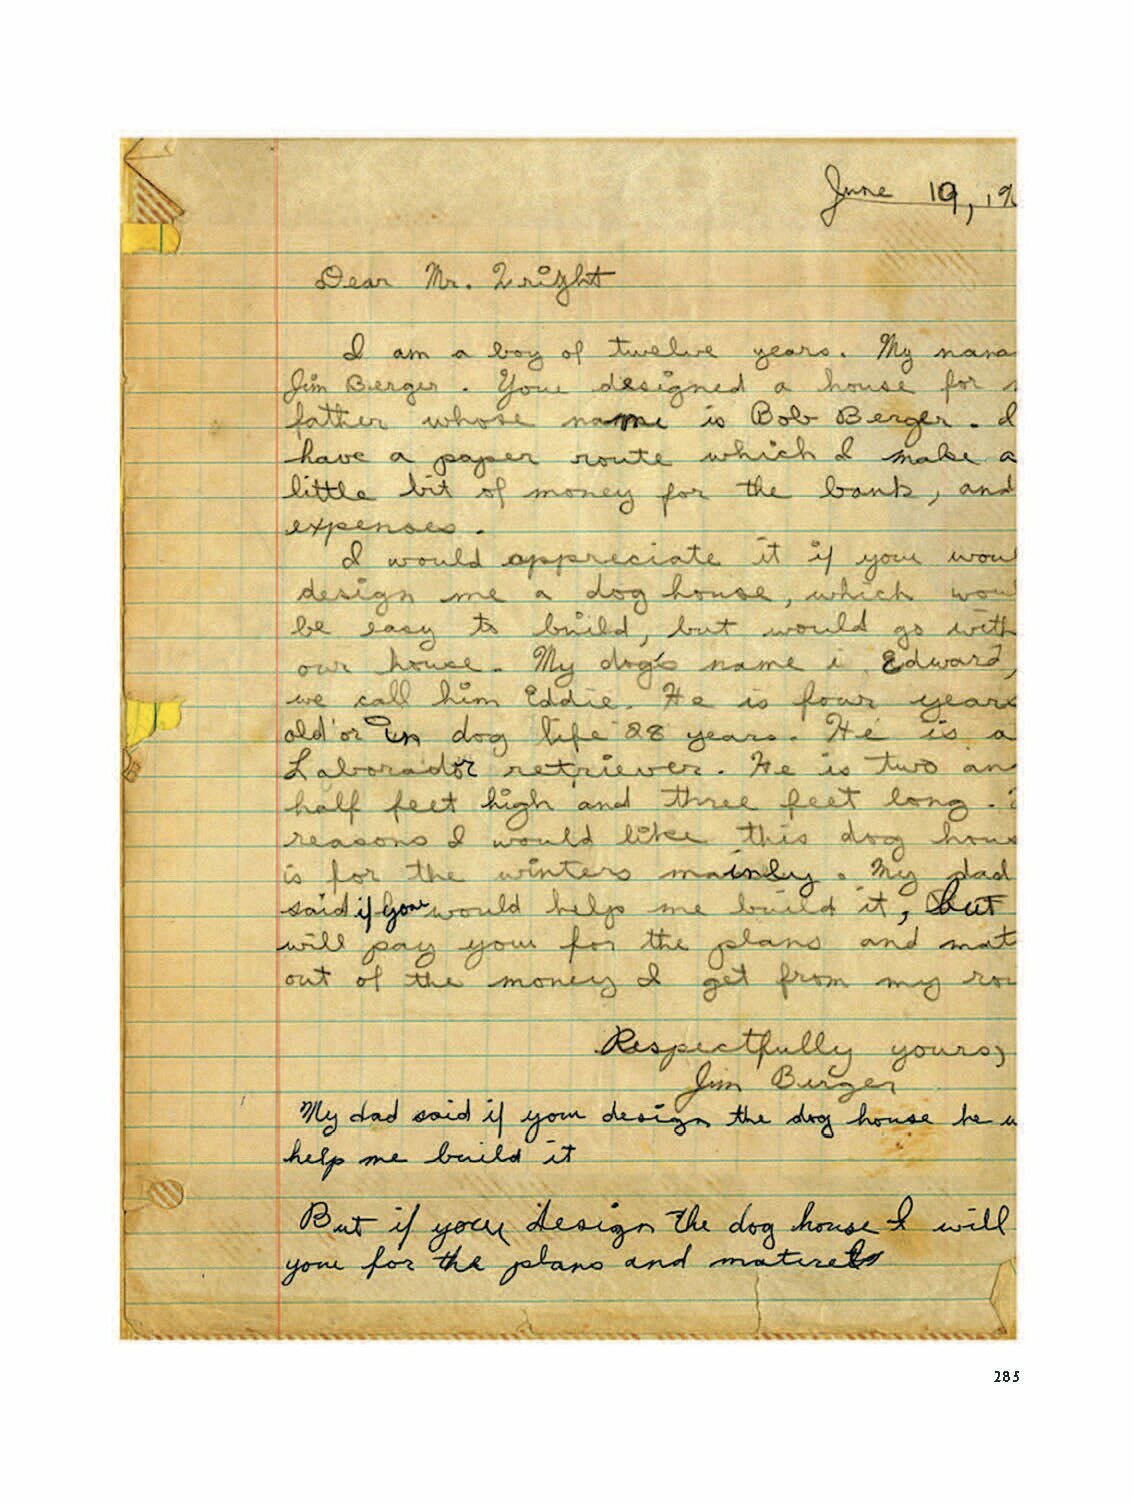 June 19, 19
Dear Mr. Wright
I am a boy of twelve years. My name
Jim Berger. You designed a house for
father whose name is Bob Berger. I
have a paper route which I make a
little bit of money for the bank, and
expenses.
I would appreciate it if you woul
design me a dog house, which woul
be easy to build, but would go with
our house. My dog's name i Edward,
we call him Eddie. He is four years
old or in dog life 28 years. He is a
Laborador retriever. He is two an
half feet high and three feet long.
reasons I would like this dog hous
is for the winters mainly. My dad
said if you would help me build it, but
will pay you for the plans and mat
out of the money I get from my rou
Respectfully yours,
Jim Berger
My dad said if you design the dog house he w
help me build it
But if you design the dog house I will
you for the plans and materels
285